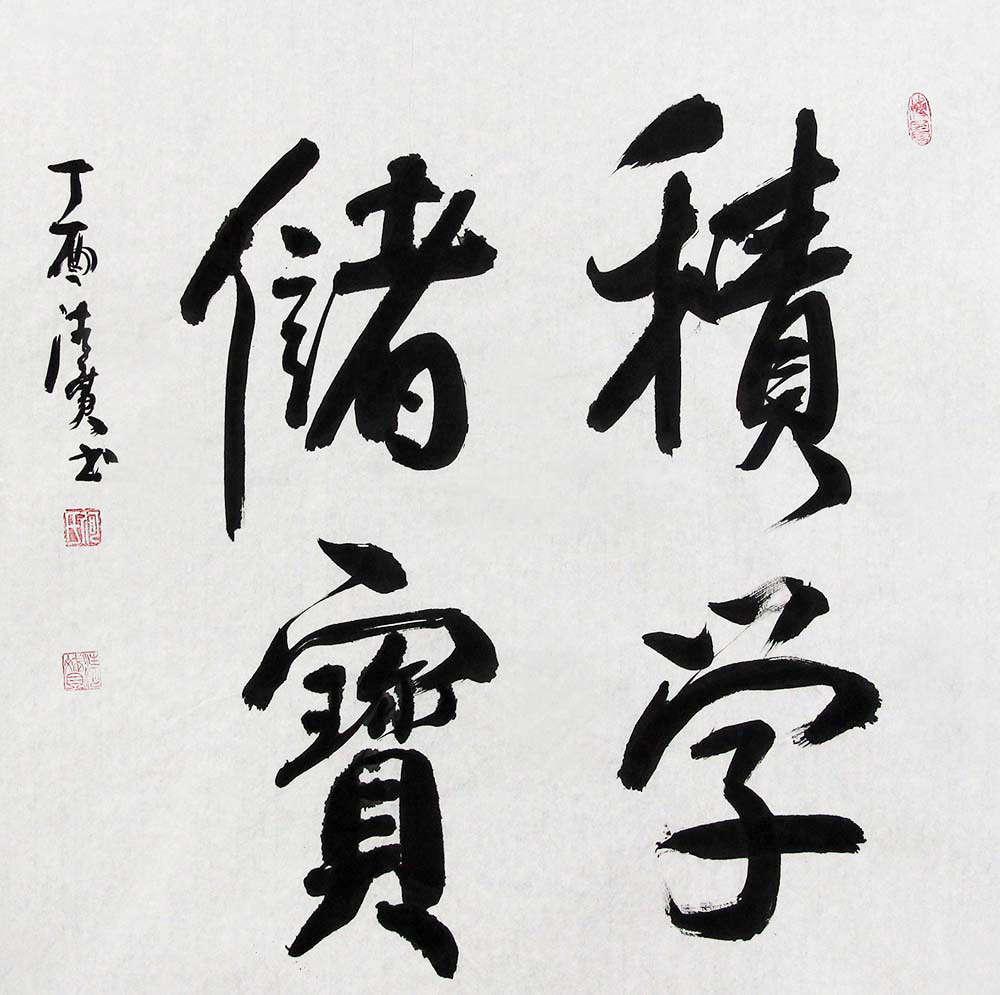 積学
儲寶
丁酉书